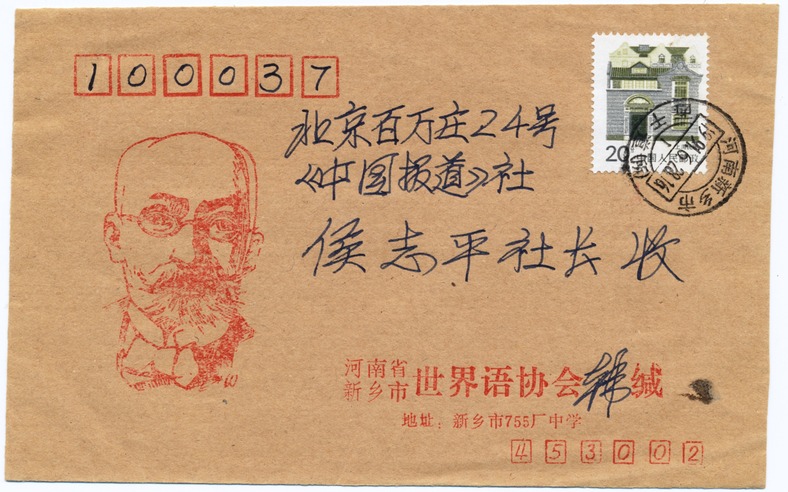 100037
北京百万庄24号
《中国报道》社
侯志平社长 收
20
中国人民邮政
河南新乡市
河南省
新乡市
世界语协会韩缄
地址：新乡市755厂中学
453002